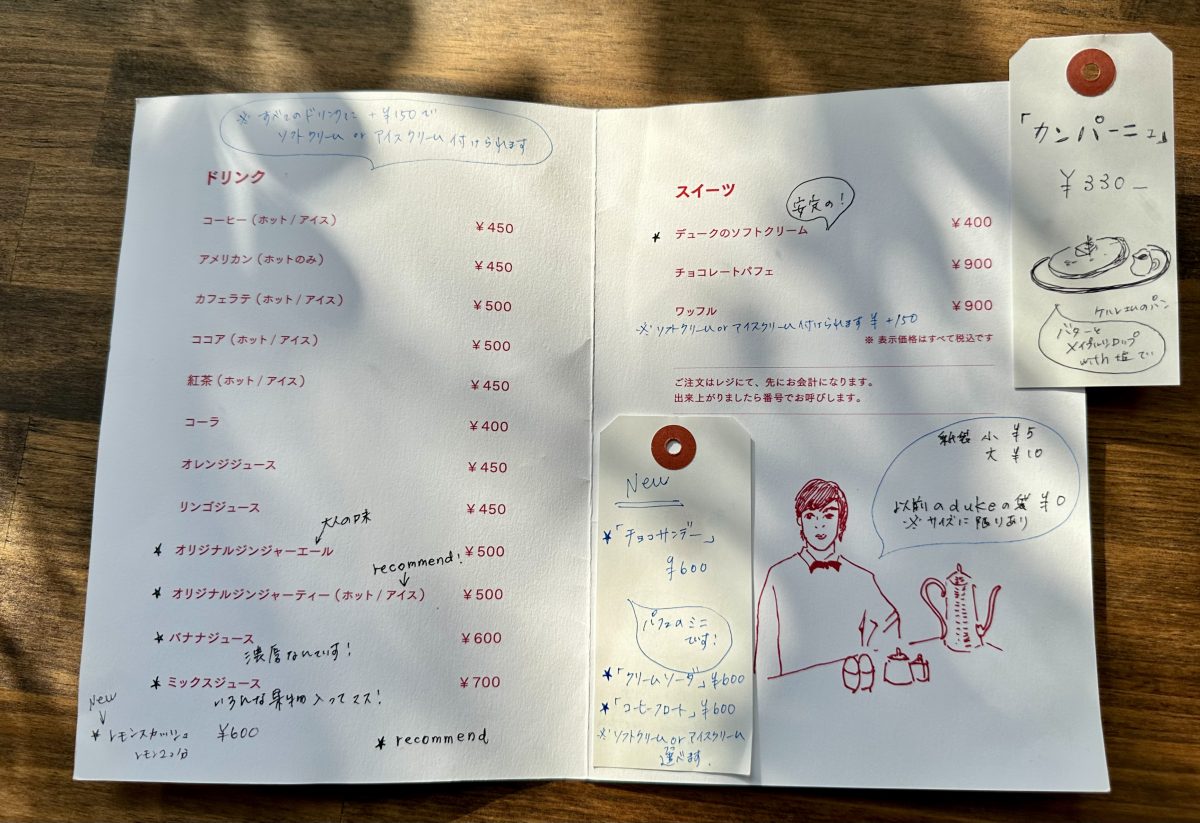 ※ すべてのドリンクに +¥150で
ソフトクリーム or アイスクリーム付けられます
ドリンク
コーヒー（ホット / アイス） ¥450
アメリカン（ホットのみ） ¥450
カフェラテ（ホット / アイス） ¥500
ココア（ホット / アイス） ¥500
紅茶（ホット / アイス） ¥450
コーラ ¥400
オレンジジュース ¥450
リンゴジュース ¥450
大人の味
★ オリジナルジンジャーエール ¥500
recommend!
★ オリジナルジンジャーティー（ホット / アイス） ¥500
★ バナナジュース ¥600
濃厚なんです!
★ ミックスジュース ¥700
いろんな果物入ってマス!
New
★ レモンスカッシュ ¥600
レモン2コ分
★ recommend
スイーツ
安定の!
★ デュークのソフトクリーム ¥400
チョコレートパフェ ¥900
ワッフル ¥900
※ ソフトクリーム or アイスクリーム付けられます ¥+150
※ 表示価格はすべて税込です
ご注文はレジにて、先にお会計になります。
出来上がりましたら番号でお呼びします。
New
★「チョコサンデー」
¥600
パフェのミニ
です!
★「クリームソーダ」¥600
★「コーヒーフロート」¥600
※ソフトクリーム or アイスクリーム
選べます。
紙袋 小 ¥5
大 ¥10
以前のdukeの袋 ¥0
※サイズに限りあり
「カンパーニュ」
¥330-
のパン
バターと
メイプルシロップ
with 塩で